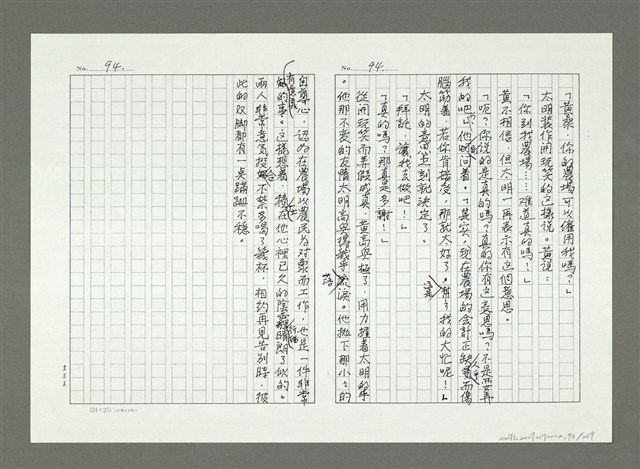 No. 94.
「黃泉，你的農場可以僱用我嗎？」
太明裝作用開玩笑的這樣說。黃說：
「你到我農場……難道真的嗎？」
黃不相信，但太明一再表示有這個意思。
「呃？你說的是真的嗎？真的你有這意思嗎？不是要弄
我的吧」他試問着。「其實，現在農場的會計正缺員而傷
腦筋着，若你肯擔受，那就太好了。幫了我的大忙呢！」
太明的意思立刻就決定了。
「拜託，讓我去做吧！」
「真的嗎？那真是多謝！」
從開玩笑而弄假成真，黃高興極了，用力握着太明的手
。他那不變的友情太明高興得幾乎流淚。他拋下那小小的
No. 94.
自棄心，認為在農場以農民為對象而工作，也是一件非常
有意義的事。這樣想着，積在他心裡已久的陰霾晴朗了似的。
兩人非常意氣投合，不禁多喝了幾杯，相約再見告別時，彼
此的双脚都有一點蹒跚不穩。
(24×25)